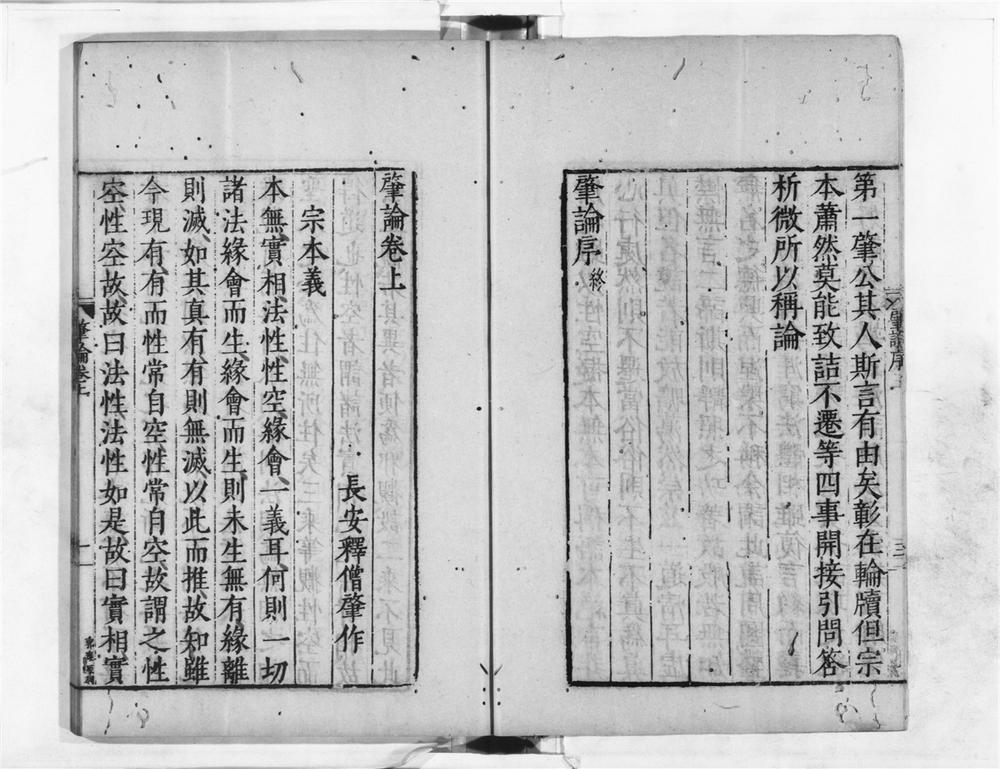 第一肇公其人斯言有由矣彰在輪牘但宗
本蕭然莫能致詰不遷等四事開接引問答
析微所以稱論
肇論序 終
肇論序 三
肇論卷上
宗本義
長安釋僧肇作
本無、實相、法性、性空、緣會、一義耳、何則、一切
諸法、緣會而生、緣會而生、則未生無有、緣離
則滅、如其真有、有則無滅、以此而推、故知雖
今現有、有而性常自空、性常自空、故謂之性
空、性空故、故曰法性、法性如是、故曰實相、實
肇論卷上 一